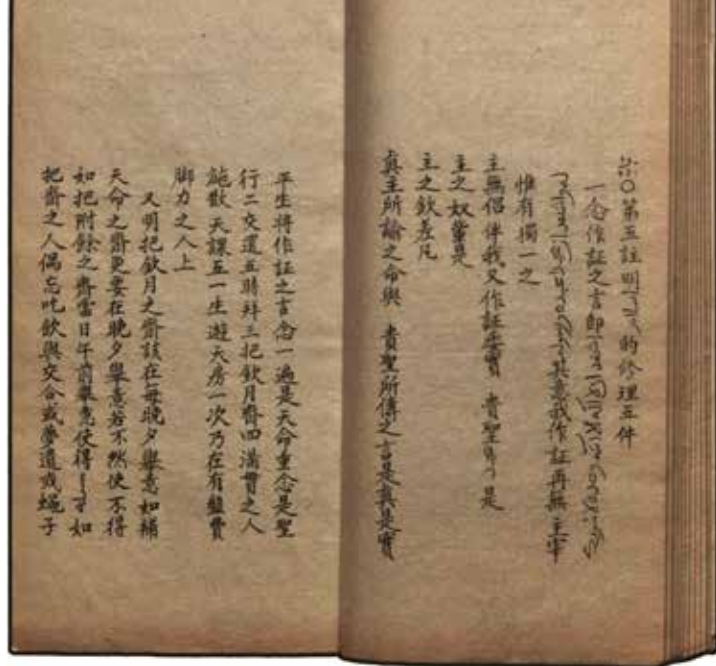 第五註明 的修理五件
一念作証之言即
其意我作証再無主宰
惟有獨一之
主無侶伴我又作証 實 貴聖 是
主之奴僕是
主之欽差凡
真主所諭之命與 貴聖所傳之言是真是實
平生將作証之言念一遍是天命重念是聖
行二交還五時拜三把欽月齋四滿貫之人
施散天課五一生遊天房一次乃在有盤費
脚力之人上
又明把欽月之齋該在每晚夕舉意如補
天命之齋更要在晚夕舉意若不然使不得
如把附餘之齋當日午前舉意使得 如
把齋之人偶忘吃飲與交合或夢遺或蠅子